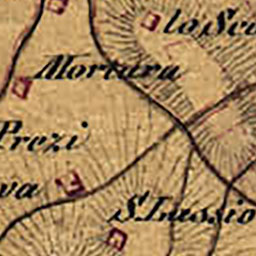 lo Sco
Mortara
Prezi
va
S. Inassio